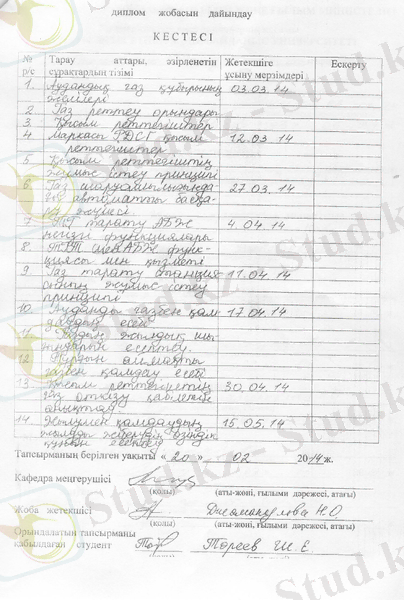 диплом жобасын дайындау
КЕСТЕСІ
№ р/с Тарау аттары, әзірленетін сұрақтардың тізімі Жетекшіге ұсыну мерзімдері Ескерту
1. Аудандық газ құбырының 03.03.14
желілері
2 Газ реттеу орындары
3 Қысым реттегіштер
4 Маркасы РДСГ қысым 12.03.14
реттегіштер
5 Қысым реттегіштің
жұмыс істеу принципі
6. Газ шаруашылығында 27.03.14
автоматты басқа
жүйесі
7 тарату АБЖ 4.04.14
негізгі функциялары
8. АБЖ функ-
циясы мен қызметі
9 Газ тарату станция- 11.04.14
сының жұмыс істеу
принципі
10 Ауданды газбен қам 17.04.14
даудың есебі
11 Газдың жылдық шы
ғындарын есептеу.
12
газбен қамдау есебі
13 Қысым реттегіштің 30.04.14
газ өткізу қабілетін
анықтау
14. Жылумен қамдаудың 15.05.14
жылды жіберудің өзіндік
құнын есептеу
Тапсырманың берілген уақыты « 20 » 02 2014 ж.
Кафедра меңгерушісі
(қолы) (аты-жөні, ғылыми дәрежесі, атағы)
Жоба жетекшісі Н.О
(қолы) (аты-жөні, ғылыми дәрежесі, атағы)
Орындалатын тапсырманы
қабылдаған студент Тореев Ш.Е.
Stud.kz